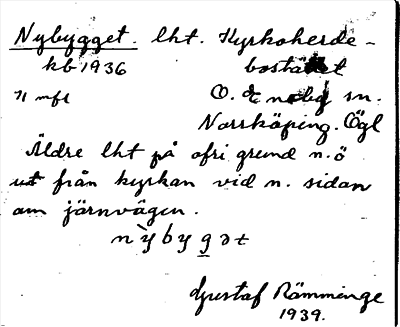 Nybygget. lht. Kyrkoherde-
kb 1936 bostället
71 mfl Ö. Eneby sn.
Norrköping. Ögl
Äldre lht på ofri grund n.ö
ut från kyrkan vid n. sidan
om järnvägen.
nỳbygət
Gustaf Rämminge
1939.